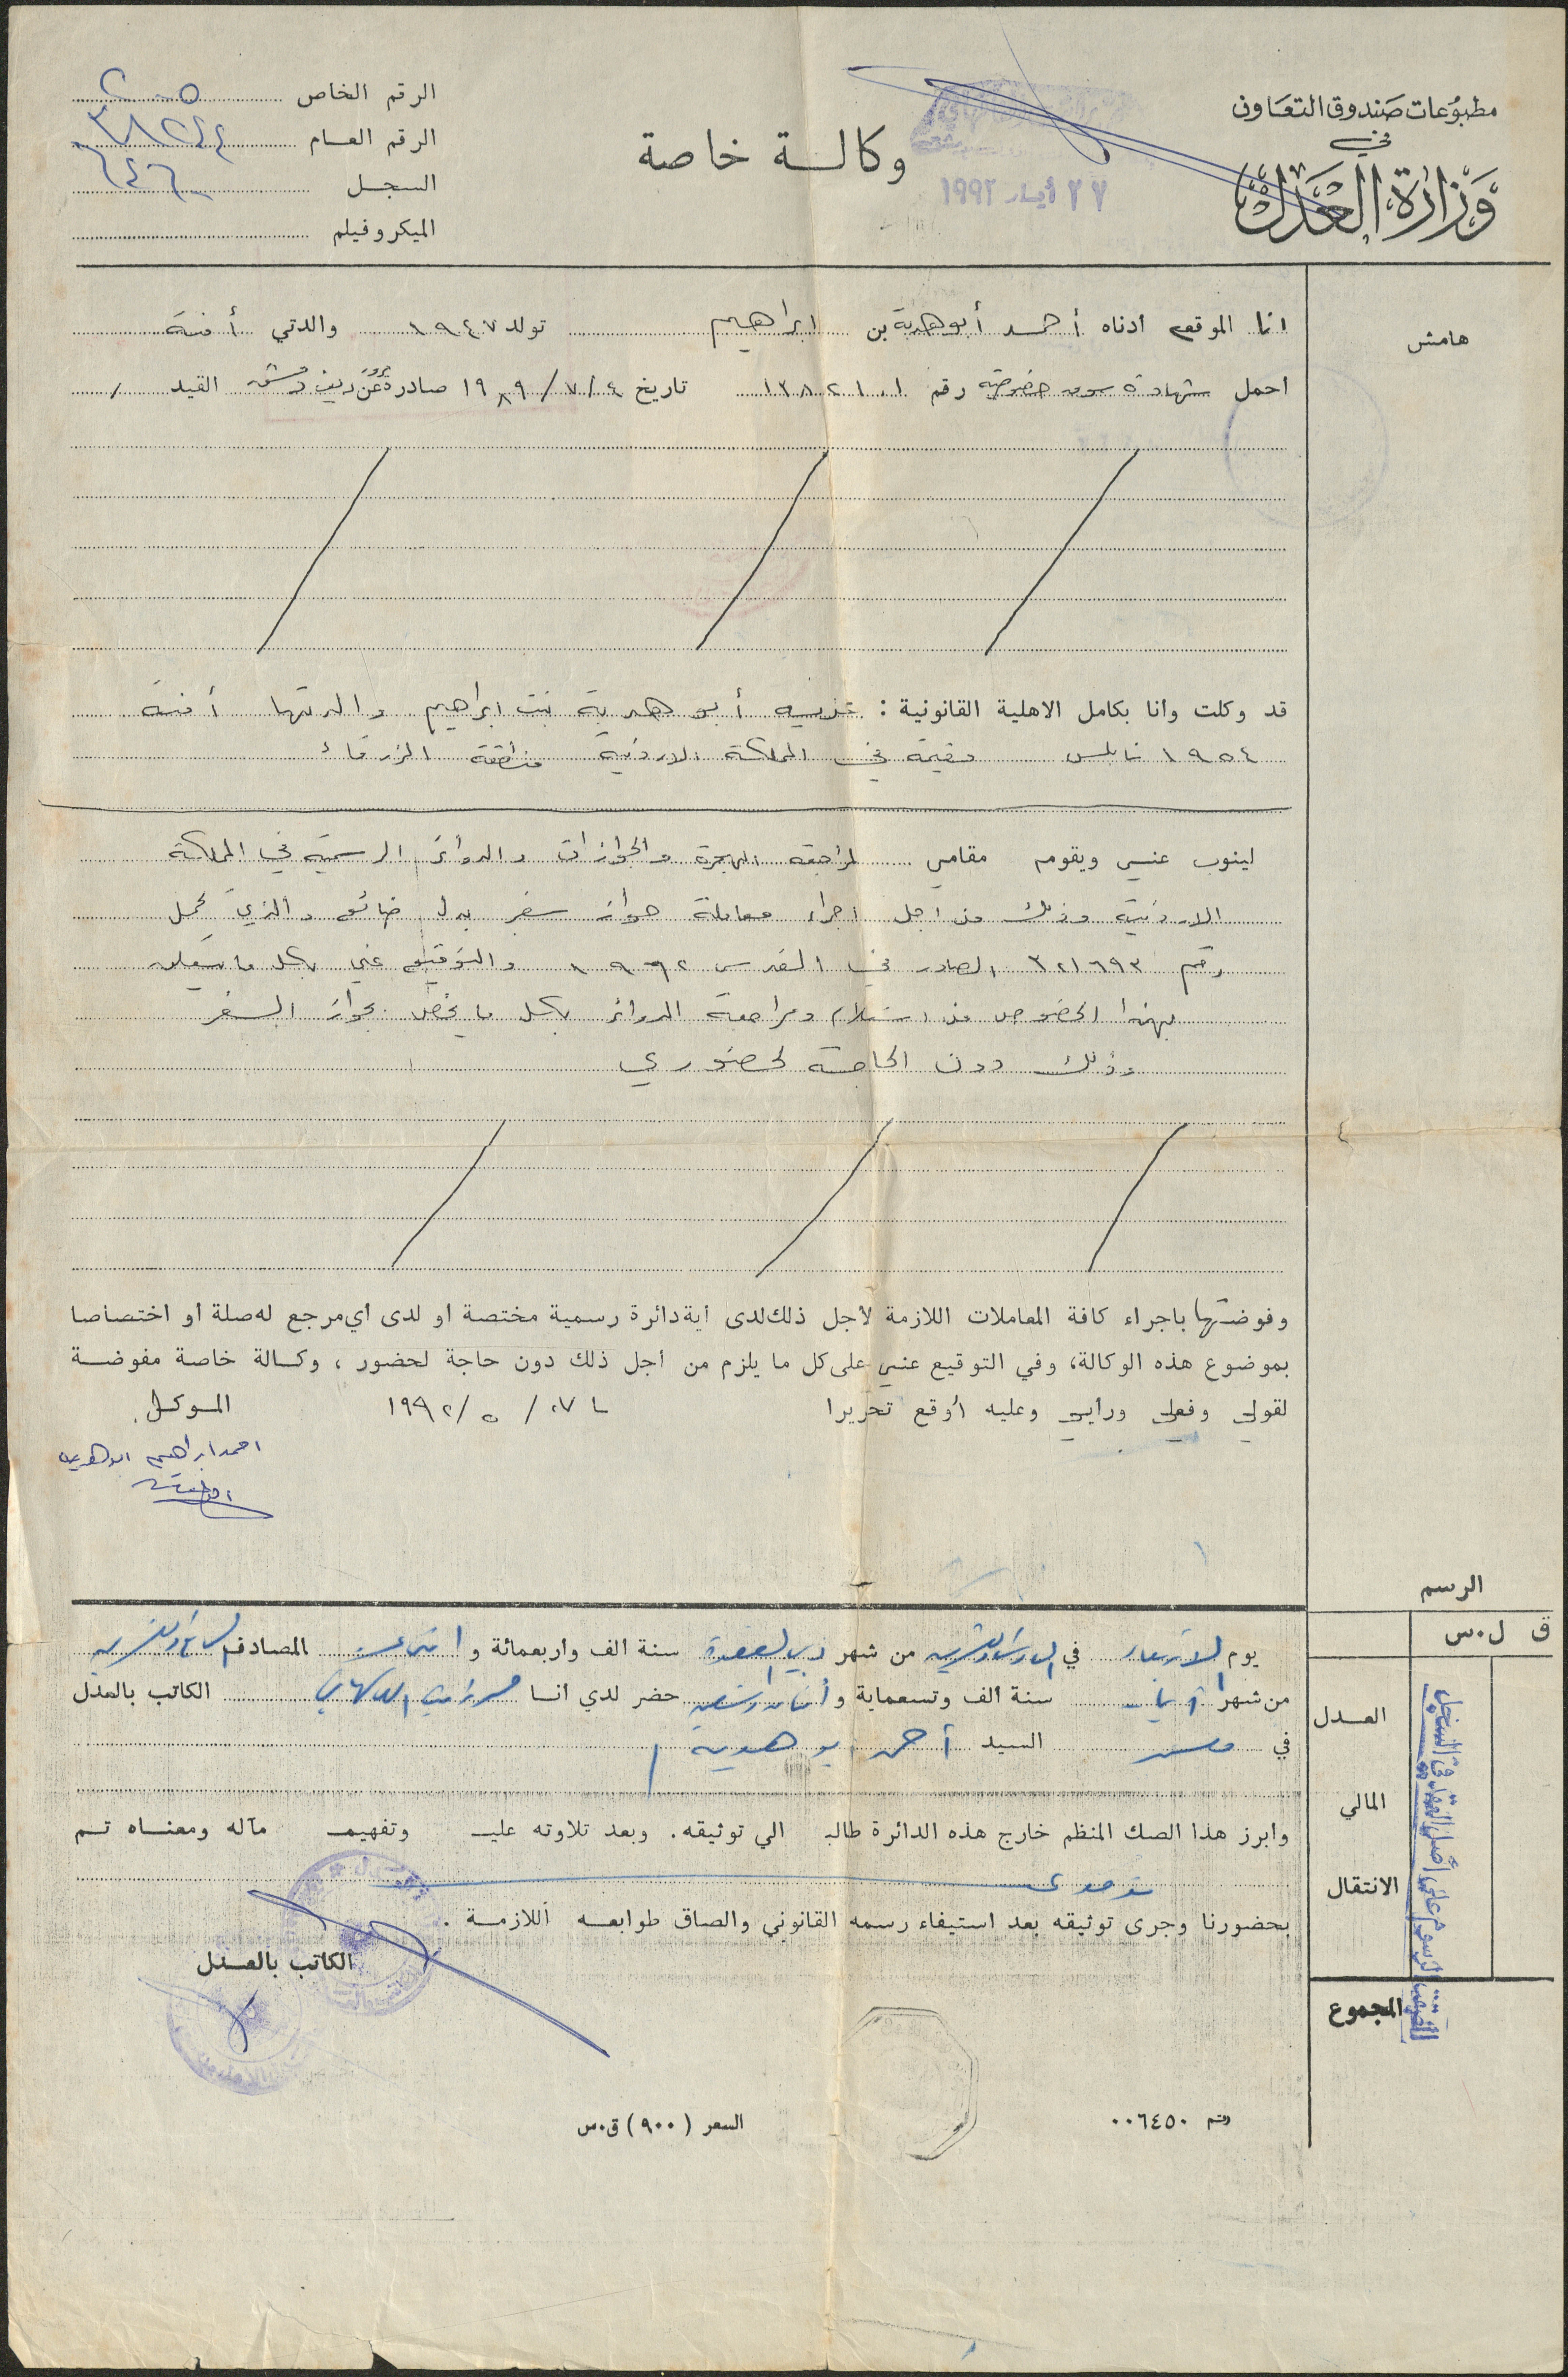 مطبوعات صندوق التعاون
في
وزارة العدل
وكالة خاصة
٢٧ أيار ١٩٩٢
الرقم الخاص
الرقم العام
السجل
الميكروفيلم
هامش
انا الموقع ادناه أحمد أبو هدبة بن ابراهيم تولد ١٩٤٧ والدتي أمنة
احمل شهادة سوق خصوصية رقم ١٣٨٢١٠١ تاريخ ٤/٧/١٩٨٩ صادرة عن ريف دمشق القيد /
قد وكلت وانا بكامل الاهلية القانونية : أبو هدبة بنت ابراهيم والدتها أمنة
١٩٥٤ نابلس مقيمة في المملكة الاردنية منطقة الزرقاء
لينوب عني ويقوم مقامي لمراجعة الهجرة والجوازات والدوائر الرسمية في المملكة
الاردنية وذلك من اجل اجراء معاملة جواز سفر بدل ضائع والذي يحمل
رقم ٣٢١٦٩٣ الصادر في القدس ١٩٩٢ والتوقيع عني بكل ما يتعلق
بهذا الخصوص من استلام ومراجعة الدوائر بكل ما يخص بجواز السفر
وذلك دون الحاجة لحضوري
٤
وفوضتها باجراء كافة المعاملات اللازمة لأجل ذلك لدى أية دائرة رسمية مختصة او لدى أي مرجع له صلة أو اختصاصا
بموضوع هذه الوكالة، وفي التوقيع عني على كل ما يلزم من أجل ذلك دون حاجة لحضور ، وكالة خاصة مفوضة
لقولي وفعلي ورأيي وعليه أوقع تحريرا ٢٧ / ٥ / ١٩٩٢ الموكل
احمد ابراهيم ابو هدبه
الرسم
ق ل.س
يوم الاربعاء في السادس والعشرين من شهر ذي القعدة سنة الف واربعمائة و اثني عشر المصادف السابع والعشرين
من شهر أيار سنة ألف وتسعماية و أثنان وتسعين حضر لدي أنا الكاتب بالعدل
في السيد أحمد أبو هدبه
العدل
المالي
وابرز هذا الصك المنظم خارج هذه الدائرة طالب الي توثيقه. وبعد تلاوته عليـ وتفهيمـ مآله ومعناه تم
الانتقال
بحضورنا وجرى توثيقه بعد استيفاء رسمه القانوني والصاق طوابعه اللازمة .
الكاتب بالعدل
المجموع
الصقت الرسوم على أصل العقد في السجل
رقم ٠٠٦٤٥٠
السعر (٩٠٠) ق.س